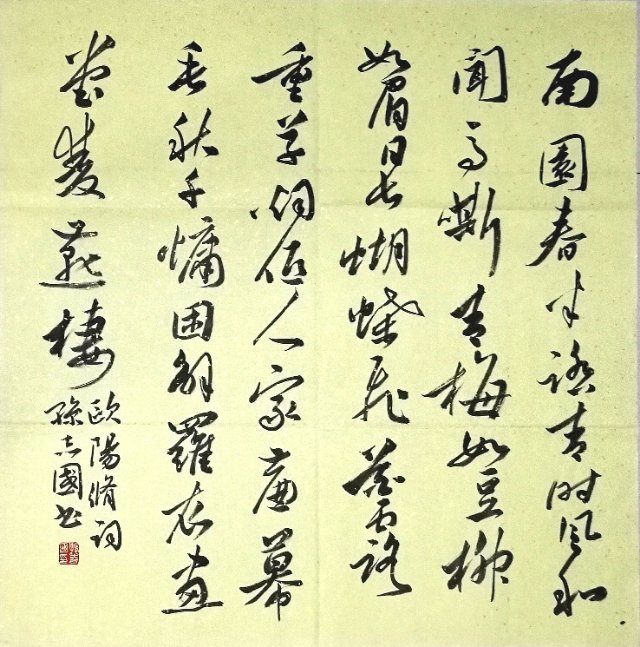 南園春半踏青时风和
聞马嘶青梅如豆柳
如眉日长蝴蝶飞花露
重草烟低人家帘幕
垂秋千慵困解羅衣画
堂雙燕棲
歐陽脩词
孫志國书